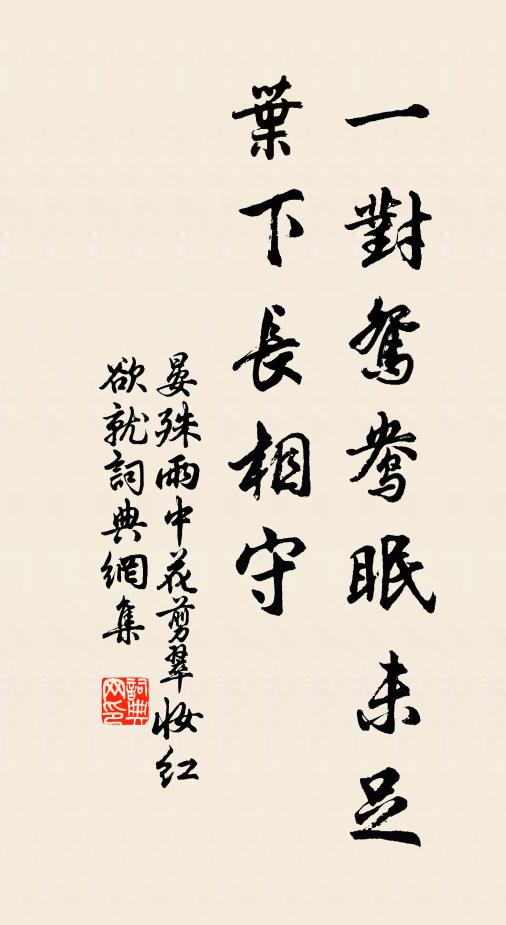 一對鴛鴦眠未足
葉下長相守
晏殊雨中花剪翠妝红
欲就詞典網集
詞典
网印